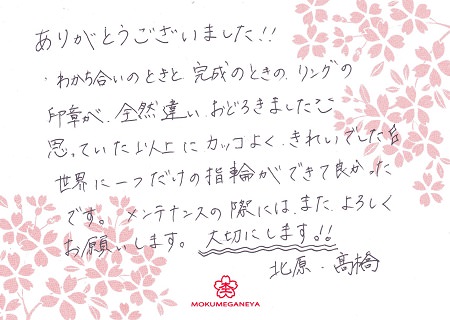 ありがとうございました!!
・わかち合いのときと完成のときの、リングの
印象が、全然違い、おどろきました
思っていた以上にカッコよく、きれいでした
世界に一つだけの指輪ができて良かった
です。メンテナンスの際には、また、よろしく
お願いします。大切にします!!
北原・髙橋
MOKUMEGANEYA